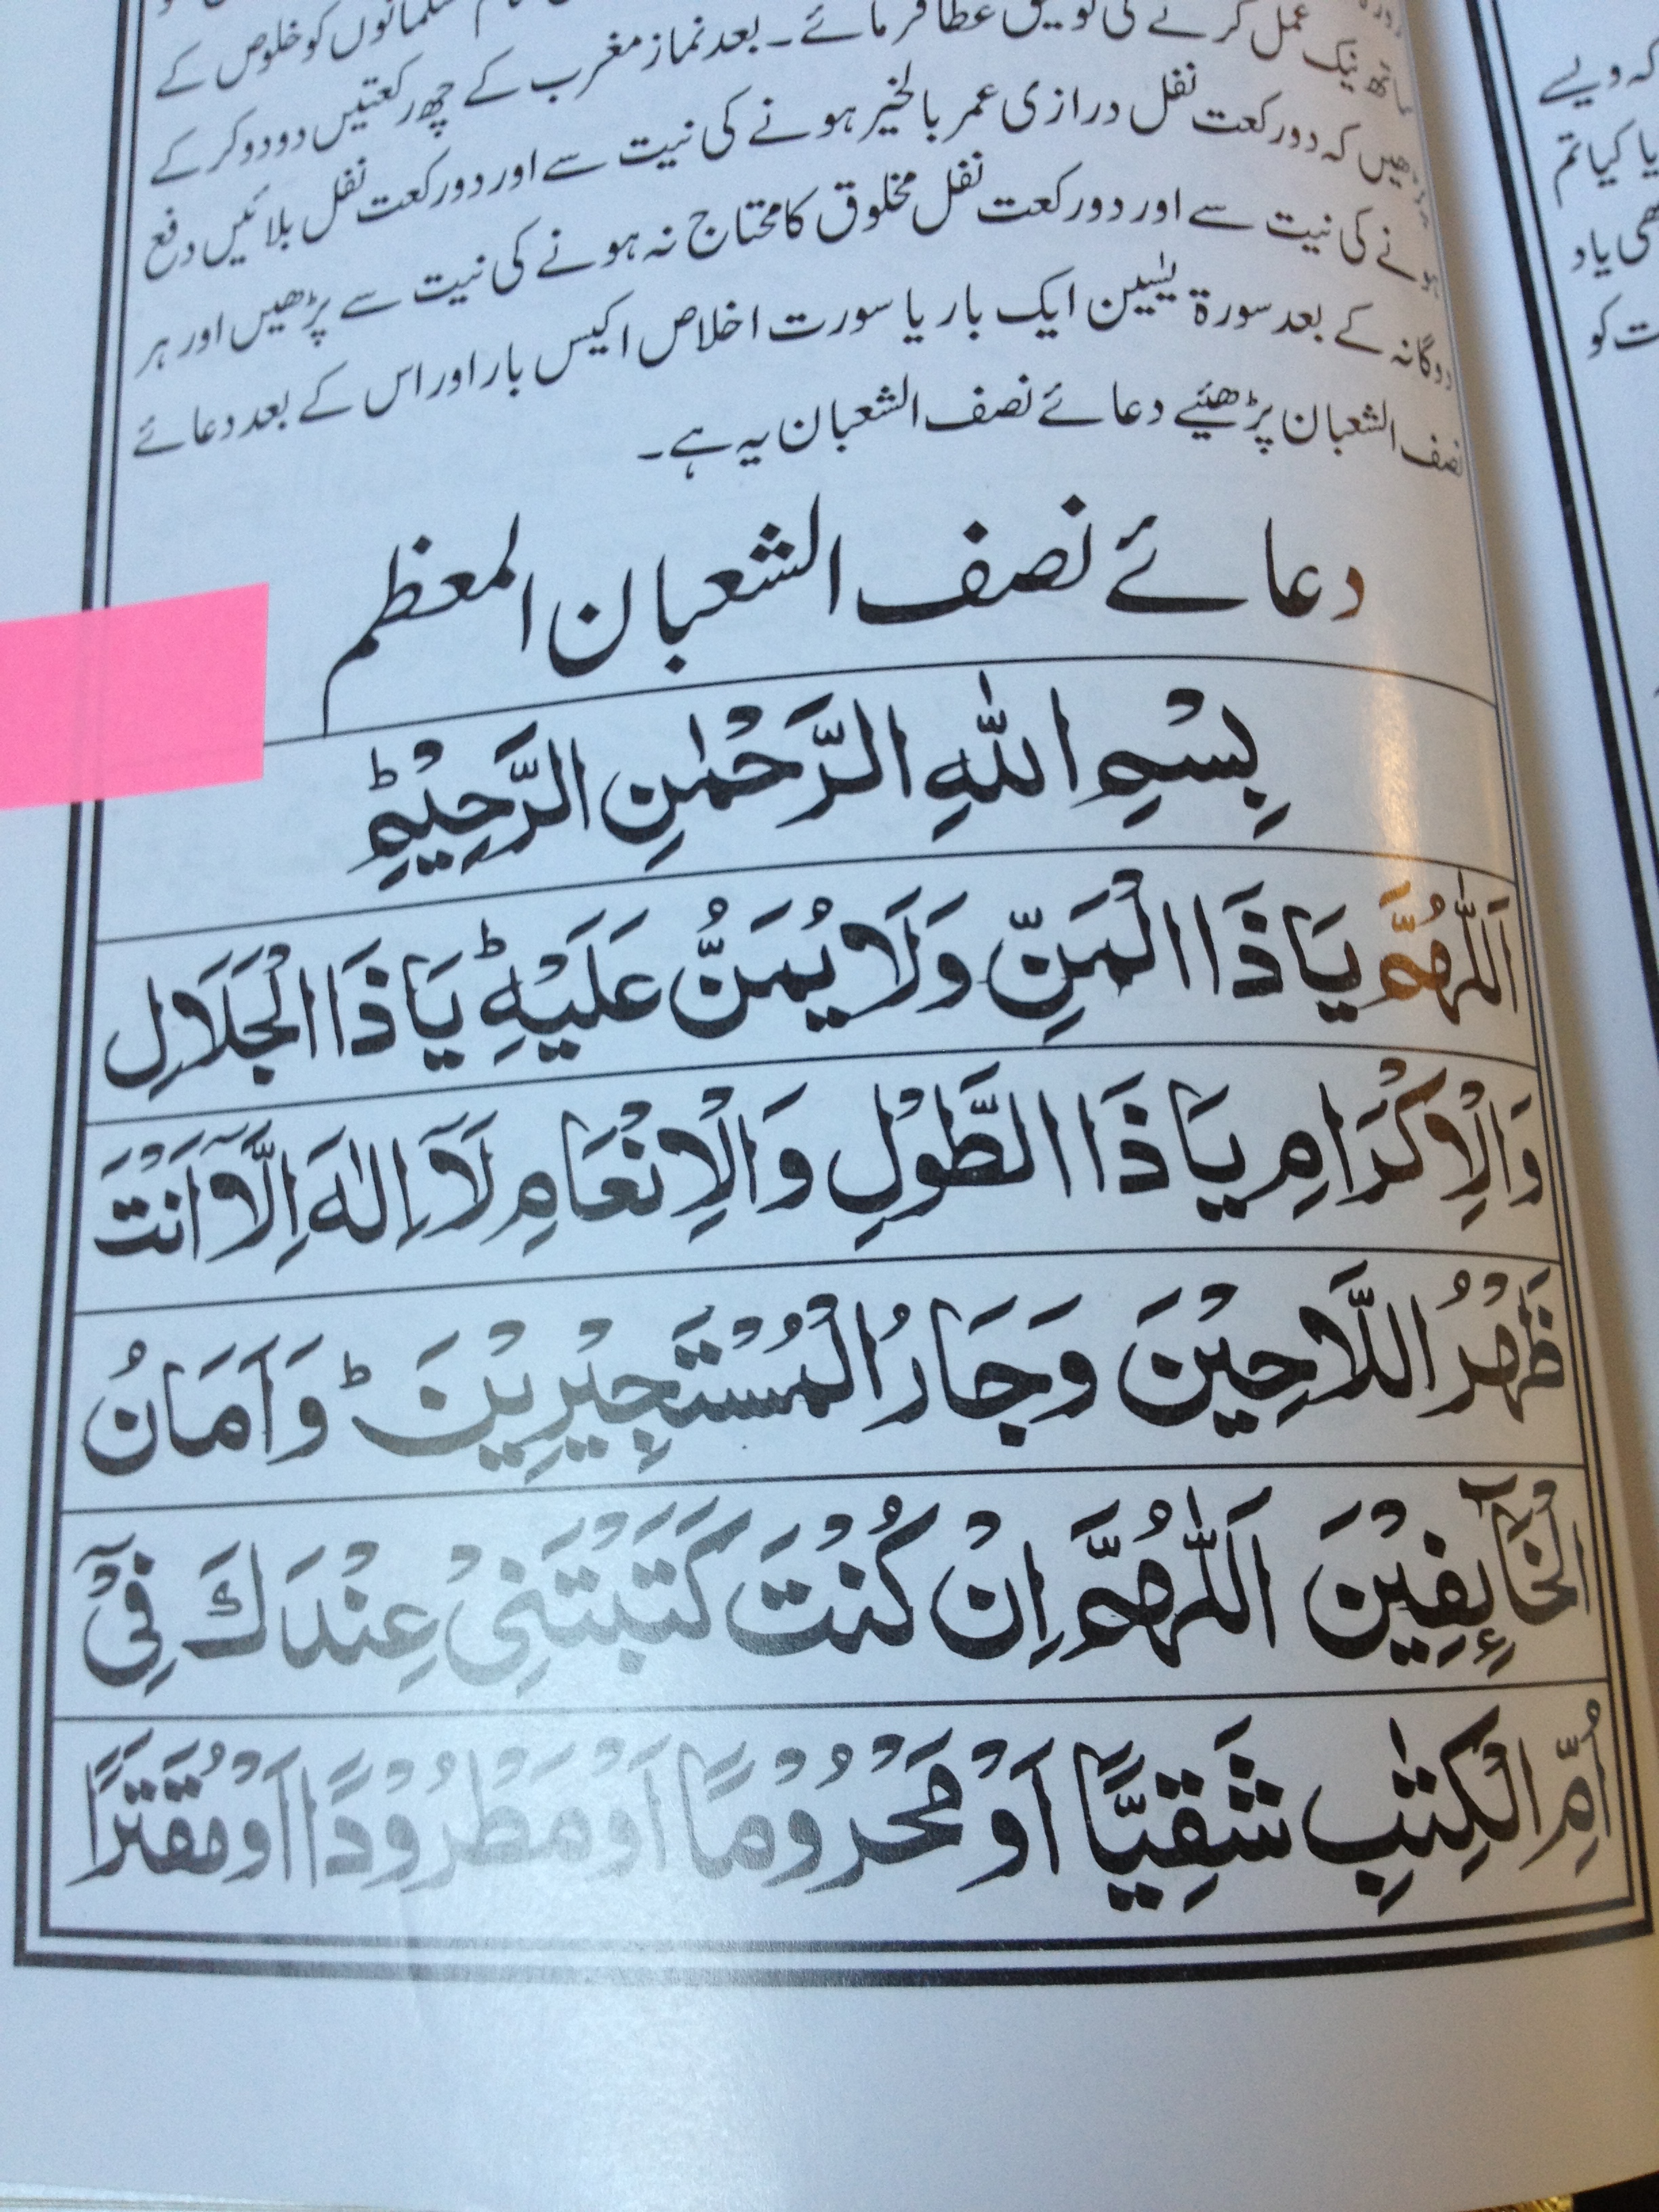 مسلمانوں کو خلوص کے
ساتھ نیک عمل کرنے کی توفیق عطا فرمائے۔ بعد نماز مغرب کے چھ رکعتیں دو دو کر کے
پڑھیں کہ دو رکعت نفل درازی عمر بالخیر ہونے کی نیت سے اور دو رکعت نفل بلائیں دفع
ہونے کی نیت سے اور دو رکعت نفل مخلوق کا محتاج نہ ہونے کی نیت سے پڑھیں اور ہر
دوگانہ کے بعد سورۃ یٰسین ایک بار یا سورت اخلاص اکیس بار اور اس کے بعد دعائے
نصف الشعبان پڑھئیے دعائے نصف الشعبان یہ ہے۔
دعائے نصف الشعبان المعظم
بِسْمِ اللّٰهِ الرَّحْمٰنِ الرَّحِيْمِؕ
اَللّٰهُمَّ يَا ذَا الْمَنِّ وَلَا يُمَنُّ عَلَيْهِؕ يَا ذَا الْجَلَالِ
وَالْاِكْرَامِ يَا ذَا الطَّوْلِ وَالْاِنْعَامِ لَآ اِلٰهَ اِلَّآ اَنْتَ
ظَهْرُ اللَّاجِيْنَ وَجَارُ الْمُسْتَجِيْرِيْنَؕ وَاَمَانُ
الْخَآئِفِيْنَ اَللّٰهُمَّ اِنْ كُنْتَ كَتَبْتَنِيْ عِنْدَكَ فِيْٓ
اُمِّ الْكِتٰبِ شَقِيًّا اَوْ مَحْرُوْمًا اَوْ مَطْرُوْدًا اَوْ مُقَتَّرًا
کہ ویسے
یا کیا تم
بھی یاد
ت کو